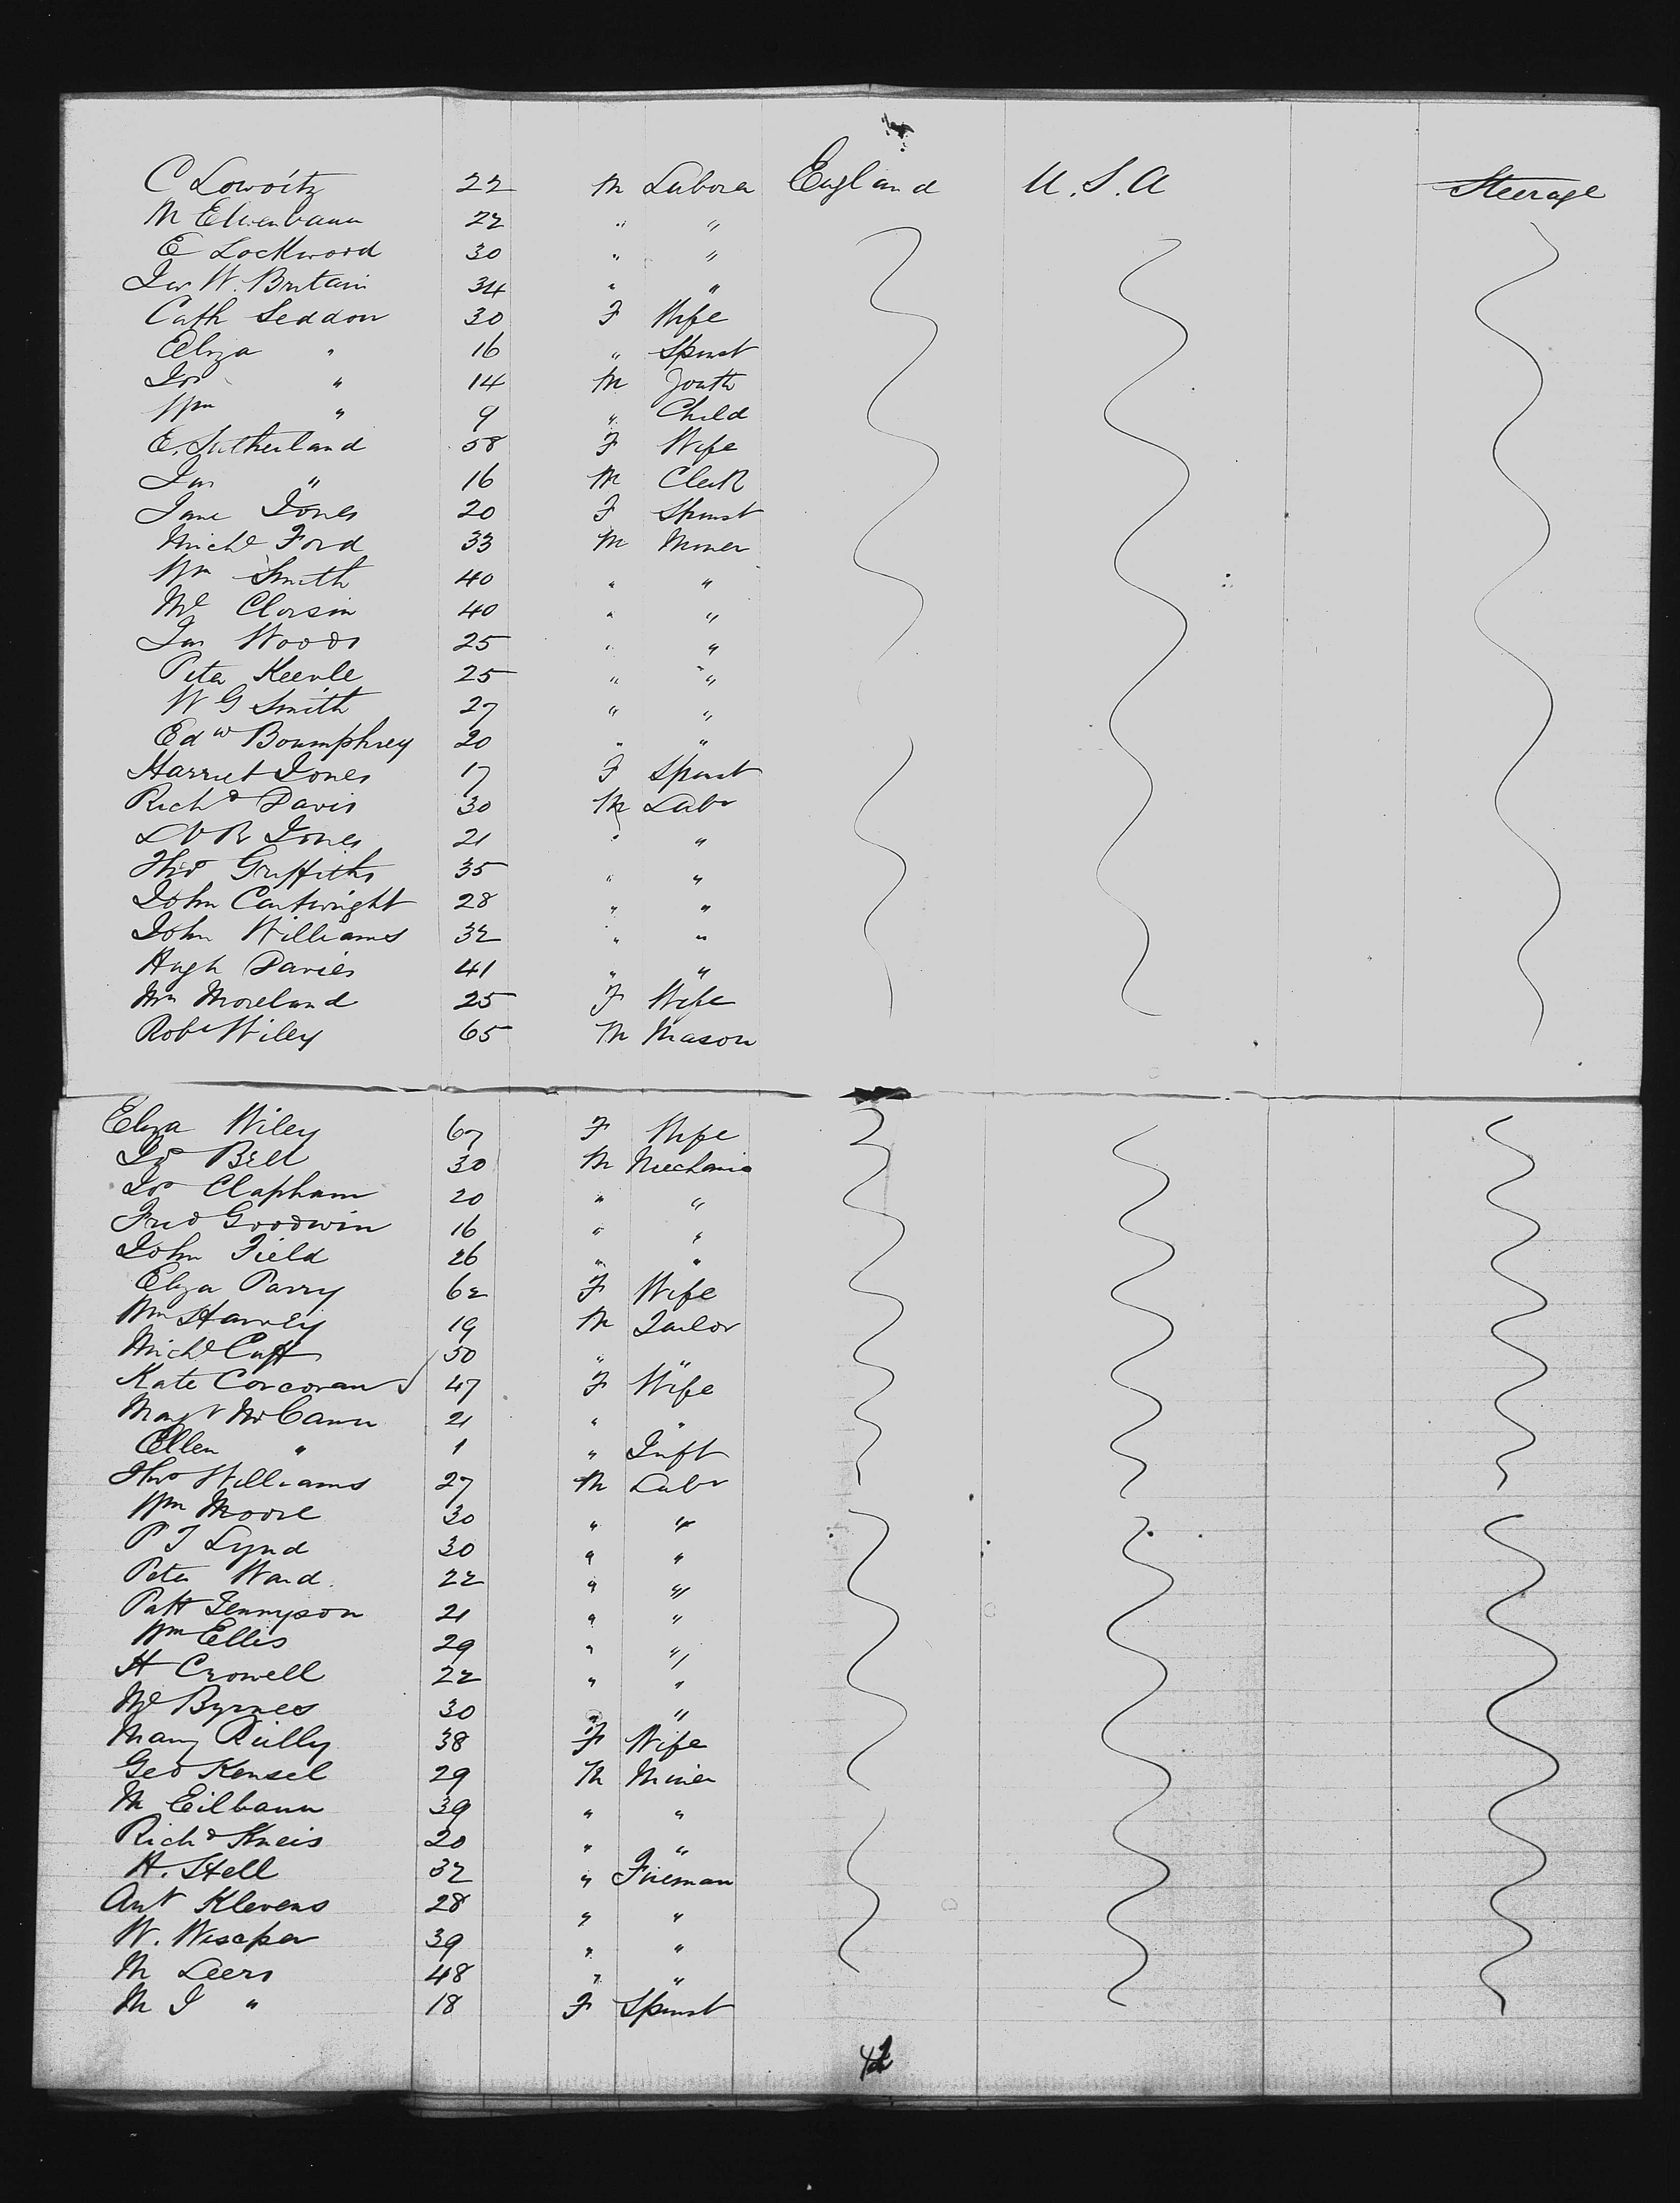 C Lowoitz 22 M Labora England U.S.A Steerage
M 22 " "
E Lockwood 30 " "
Jas W. Britain 34 " "
Cath Seddon 30 F Wife
Eliza " 16 " Spinst
Jos " 14 M Youth
Wm " 9 " Child
E. Sutherland 58 F Wife
Jas " 16 M Clerk
Jane Jones 20 F Spinst
Michl Ford 33 M Miner
Wm Smith 40 " "
Ml 40 " "
Jas Woods 25 " "
Peter 25 " "
W G Smith 27 " "
Edw Boumphrey 20 " "
Harriet Jones 17 F Spinst
Richd Davis 30 M Labr
Jones 21 " "
Thos Griffiths 35 " "
John Cartwright 28 " "
John Williams 32 " "
Hugh Davies 41 " "
Mrs Moreland 25 F Wife
Robt Wiley 65 M Mason
Eliza Wiley 67 F Wife
Jos Bell 30 M Mechanic
Jos Clapham 20 " "
Fred Goodwin 16 " "
John Field 26 " "
Eliza Parry 62 F Wife
Wm Harvey 19 M Tailor
Michl Cuff 50 " "
Kate Corcoran 47 F Wife
Margt McCann 21 " "
Ellen " 1 " Inft
Thos Williams 27 M Labr
Wm Moore 30 " "
P T Lynd 30 " "
Peter Ward 22 " "
Patt Tennyson 21 " "
Wm Ellis 29 " "
H Crowell 22 " "
Ml Byrnes 30 " "
Mary Reilly 38 F Wife
Geo Kensel 29 M Miner
M Eilbaun 39 " "
Richd Kneis 20 " "
H. Stell 32 " Fireman
Ant Klevens 28 " "
W. 39 " "
M Leers 48 " "
M J " 18 F Spinst